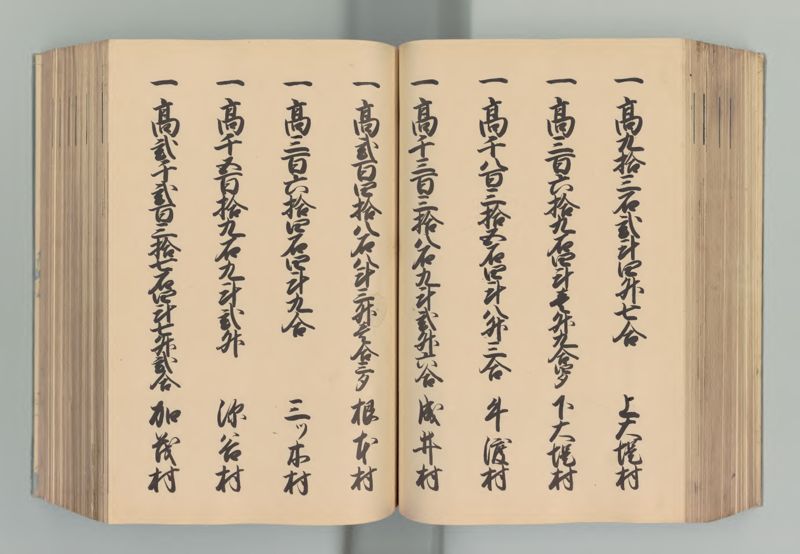 一 高九拾三石弐斗四升七合 上大堤村
一 高三百六拾九石四斗壱升九合四夕 下大堤村
一 高千八百三拾五石四斗八升三合 牛渡村
一 高千三百三拾八石九斗弐升六合 成井村
一 高弐百四拾八石八斗三升壱合三夕 根本村
一 高三百六拾四石四斗九合 三ッ木村
一 高千五百拾九石九斗弐升 深谷村
一 高弐千弐百三拾七石四斗七升弐合 加茂村